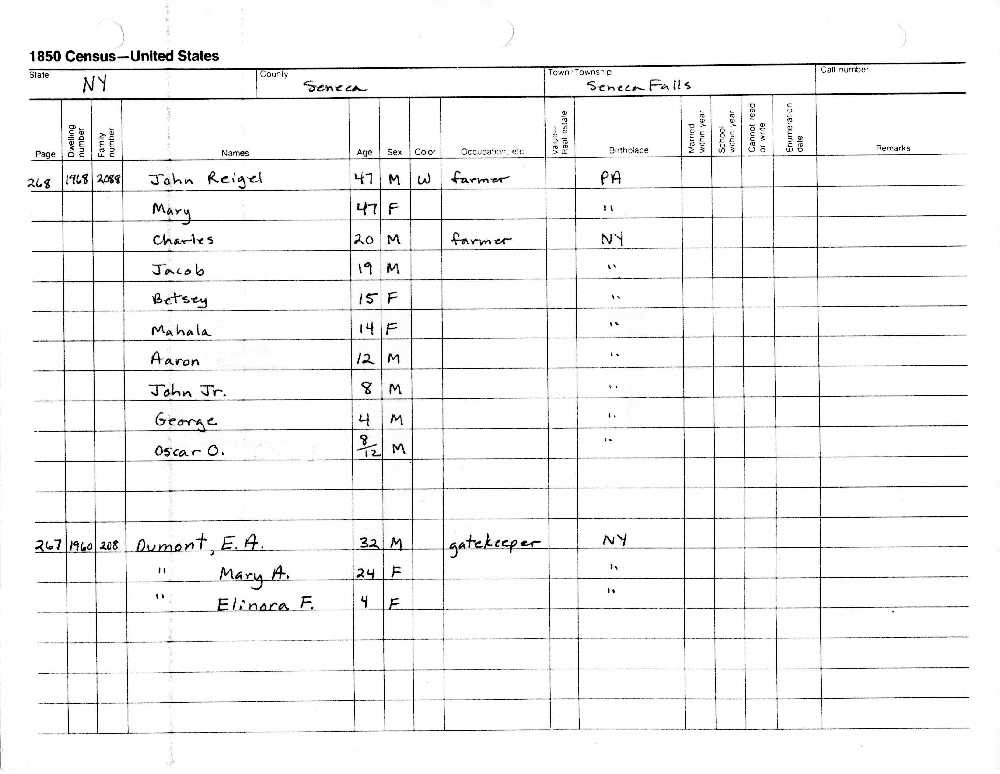 1850 Census—United States
State NY County Seneca Town/Township Seneca Falls Call number
Page Dwelling number Family number Names Age Sex Color Occupation, etc. Value— Real estate Birthplace Married within year School within year Cannot read or write Enumeration date Remarks
268 1968 2088 John Reigel 47 M W farmer PA
Mary 47 F "
Charles 20 M farmer NY
Jacob 19 M "
Betsey 15 F "
Mahala 14 F "
Aaron 12 M "
John Jr. 8 M "
George 4 M "
Oscar O. 8/12 M "
267 1960 208 Dumont, E. A. 32 M gatekeeper NY
" Mary A. 24 F "
" Elinora F. 4 F "